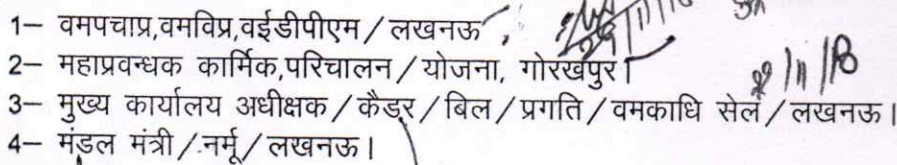 1– वमपचाप्र,वमविप्र,वईडीपीएम / लखनऊ ,
2– महाप्रवन्धक कार्मिक,परिचालन / योजना, गोरखपुर।
3– मुख्य कार्यालय अधीक्षक / कैडर / बिल / प्रगति / वमकाधि सेल / लखनऊ।
4– मंडल मंत्री / नर्मू / लखनऊ।